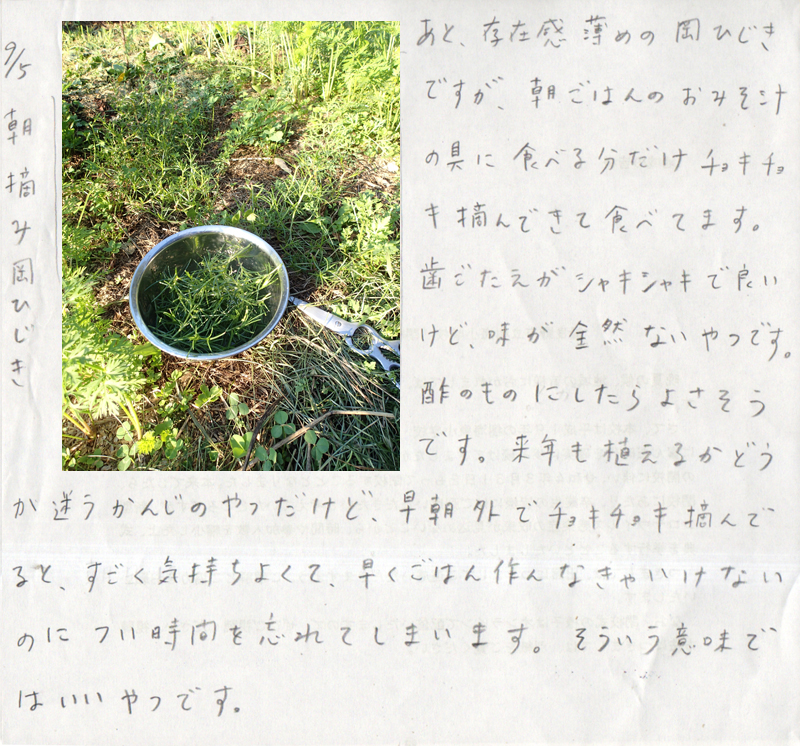 9/5 朝摘み岡ひじき
あと、存在感薄めの岡ひじき
ですが、朝ごはんのおみそ汁
の具に食べる分だけチョキチョ
キ摘んできて食べてます。
歯ごたえがシャキシャキで良い
けど、味が全然ないやつです。
酢のものにしたらよさそう
です。来年も植えるかどう
か迷うかんじのやつだけど、早朝外でチョキチョキ摘んで
ると、すごく気持ちよくて、早くごはん作んなきゃいけない
のについ時間を忘れてしまいます。そういう意味で
はいいやつです。